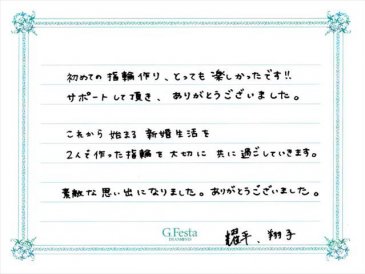 初めての指輪作り、とっても楽しかったです!!
サポートして頂き、ありがとうございました。
これから始まる新婚生活を
2人で作った指輪を大切に共に過ごしていきます。
素敵な思い出になりました。ありがとうございました。
G.Festa
DIAMOND
耀平、翔子